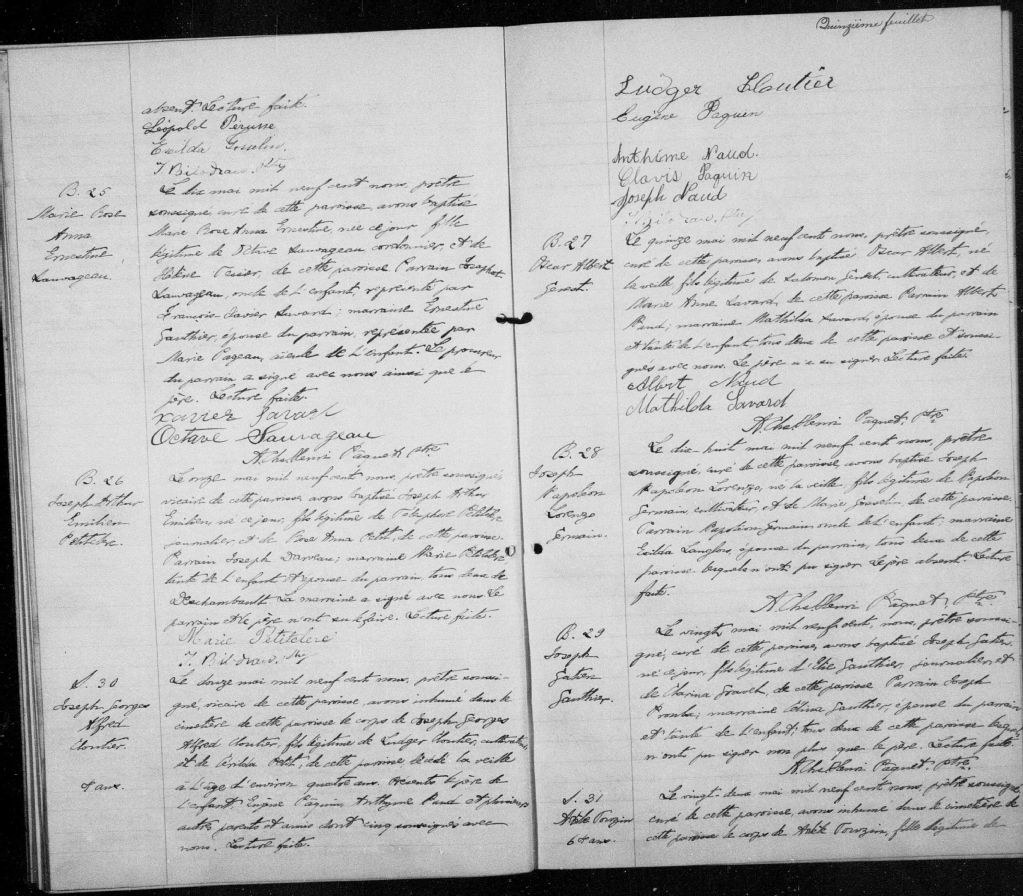 absent. Lecture faite.
Léopold Perusse
Exilda Gosselin
J. Bilodeau, Ptre
B. 25
Marie Rose
Anna
Ernestine
Sauvageau.
Le dix mai mil neuf cent nous, prêtre
soussigné curé de cette paroisse, avons baptisé
Marie Rose Anna Ernestine, née ce jour, fille
légitime de Octave Sauvageau cordonnier, et de
de cette paroisse Parrain Josaphat
Sauvageau, oncle de l'enfant, représenté par
François Xavier Savard; marraine Ernestine
Gauthier, épouse du parrain, représentée par
Marie Pageau, aieule de l'enfant. Le procureur
du parrain a signé avec nous ainsi que le
père. Lecture faite.
Xavier Savard
Octave Sauvageau
A. Chs Henri Paquet, Ptre
B. 26
Joseph Arthur
Emilien
Petitclerc.
Le onze mai mil neuf cent nous prêtre soussigné
vicaire de cette paroisse avons baptisé Joseph Arthur
Emilien, né ce jour, fils légitime de Télesphore Petitclerc
journalier, et de Rose Anna Petit, de cette paroisse.
Parrain Joseph Darveau; marraine Marie Petitclerc,
tante de l'enfant et épouse du parrain tous deux de
Deschambault. La marraine a signé avec nous Le
parrain et le père n'ont su le faire. Lecture faite.
Marie Petitclerc
J. Bilodeau, Ptre
S. 30
Joseph Georges
Alfred
Cloutier.
4 ans.
Le douze mai mil neuf cent nous, prêtre soussi-
gné, vicaire de cette paroisse, avons inhumé dans le
cimetière de cette paroisse le corps de Joseph Georges
Alfred Cloutier, fils légitime de Ludger Cloutier, cultivateur,
et de Cérilia Petit, de cette paroisse décédé la veille
à l'âge d'environ quatre ans. Présents le père de
l'enfant, Eugène Paquin, Anthyme Naud et plusieurs
autre parents et amis dont cinq soussignés avec
nous. Lecture faite.
Quinzième feuillet
Ludger Cloutier
Eugène Paquin
Anthime Naud.
Clovis Paquin
Joseph Naud
J. Bilodeau, Ptre
B. 27
Oscar Albert
Genest.
Le quinze mai mil neuf cent nous, prêtre soussigné,
curé de cette paroisse, avons baptisé Oscar Albert, né
la veille fils légitime de Salomon Genest, cultivateur, et de
Marie Anne Savard, de cette paroisse Parrain Albert
Naud; marraine Mathilda Savard, épouse du parrain
et tante de l'enfant, tous deux de cette paroisse et soussi-
gnés avec nous. Le père n'a su signer. Lecture faite.
Albert Naud
Mathilda Savard
A. Chs Henri Paquet, Ptre.
B. 28
Joseph
Napoléon
Lorenzo
Germain.
Le dix-huit mai mil neuf cent nous, prêtre
soussigné, curé de cette paroisse, avons baptisé Joseph
Napoléon Lorenzo, né la veille, fils légitime de Napoléon
Germain cultivateur, et de Marie Gravelin de cette paroisse.
Parrain Napoléon Germain oncle de l'enfant; marraine
Exilda Langlois, épouse du parrain, tous deux de cette
paroisse lesquels n'ont pu signer. Le père absent. Lecture
faite.
A. Chs Henri Paquet, Ptre
B. 29
Joseph
Gatien
Gauthier.
Le vingt mai mil neuf cent, nous, prêtre soussi-
gné, curé de cette paroisse, avons baptisé Joseph Gatien,
né ce jour, fils légitime d'Elie Gauthier, journalier, et
de Clarina Gravel, de cette paroisse Parrain Joseph
marraine Gauthier, épouse du parrain
et tante de l'enfant; tous deux de cette paroisse lesquels
n'ont pu signer non plus que le père. Lecture faite
A. Chs Henri Paquet, Ptre.
S. 31
Adèle Touzin
64 ans.
Le vingt-deux mai mil neuf cent nous, prêtre soussigné
curé de cette paroisse, avons inhumé dans le cimetière de
cette paroisse le corps de Adèle Touzin, fille légitime de